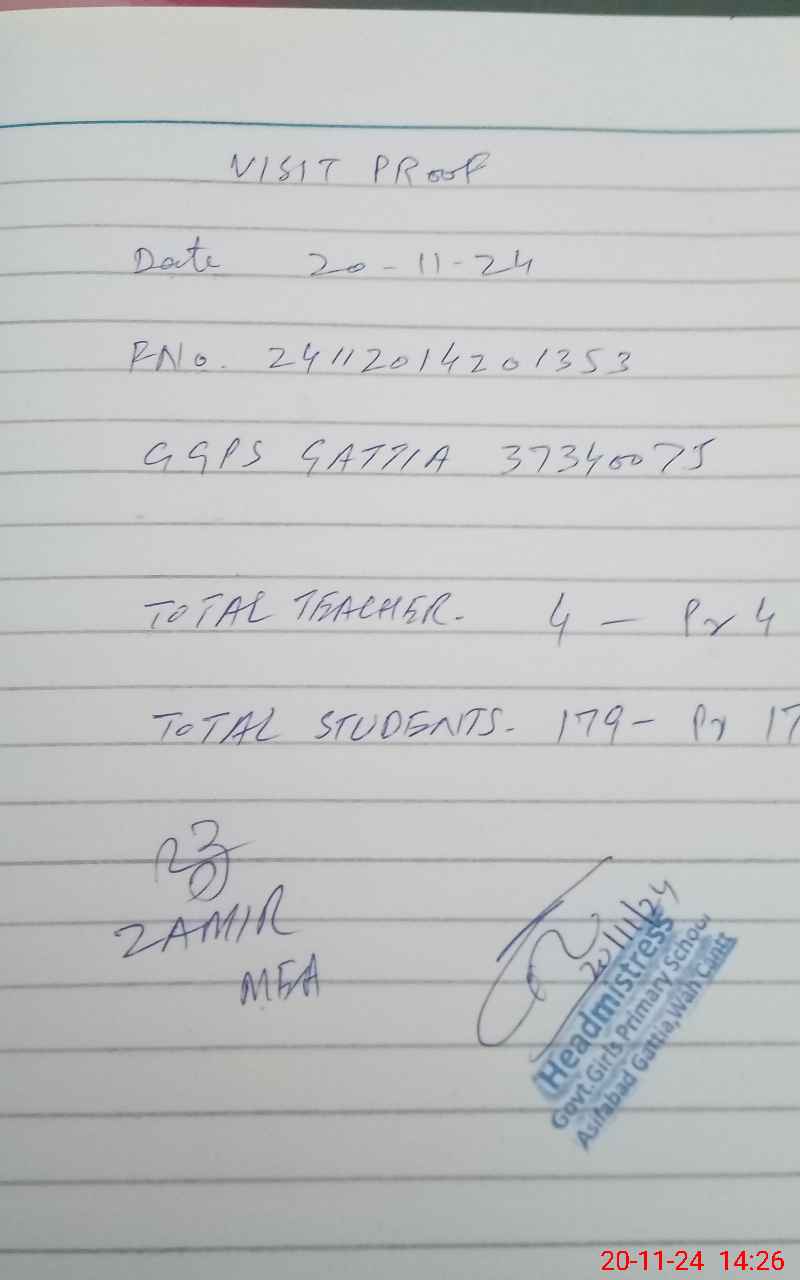 VISIT PROOF
Date 20-11-24
FNo. 24112014201353
GGPS GATTIA 37340075
TOTAL TEACHER. 4 — Pr 4
TOTAL STUDENTS. 179 — Pr 17
ZAMIR
MEA
20/11/24
Headmistress
Govt.Girls Primary School
Asifabad Gattia,Wah Cantt
20-11-24 14:26